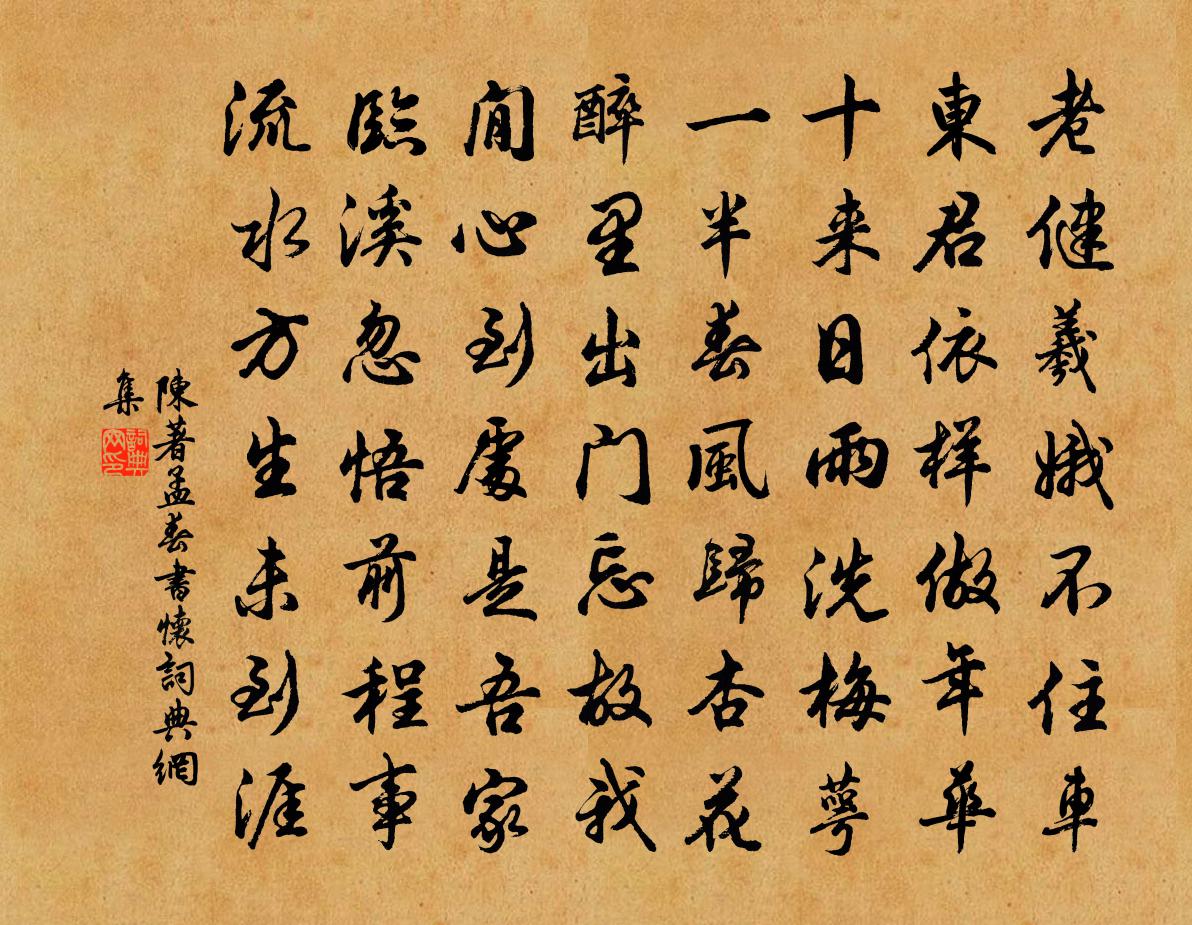 老健羲娥不住車
東君依样做年華
十来日雨洗梅萼
一半春風歸杏花
醉里出门忘故我
閒心到處是吾家
臨溪忽悟前程事
流水方生未到涯
陳著孟春書懷詞典網
集
詞典
网印